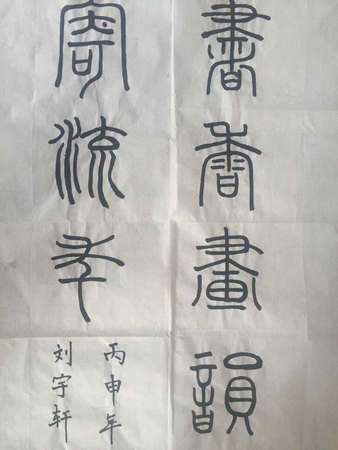 書香畫韻
寄流年
丙申年
刘宇轩